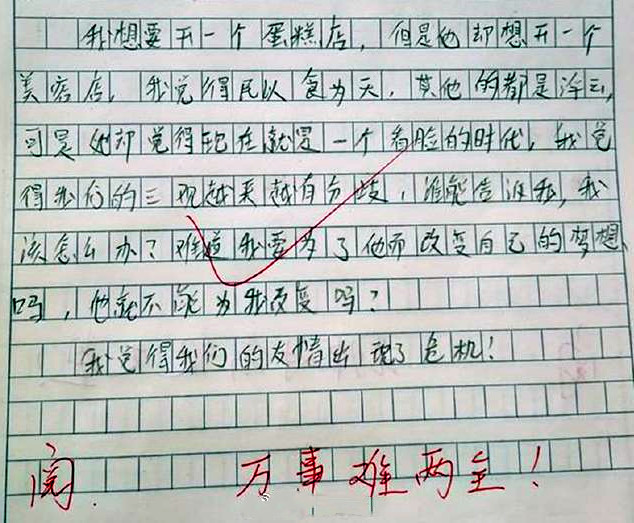 我想要开一个蛋糕店，但是他却想开一个
美容店，我觉得民以食为天，其他的都是浮云，
可是他却觉得现在就是一个看脸的时代，我觉
得我们的三观越来越有分歧，谁能告诉我，我
该怎么办？难道我要为了他而改变自己的梦想
吗，他就不能为我改变吗？
我觉得我们的友情出现了危机！
阅. 万事难两全！